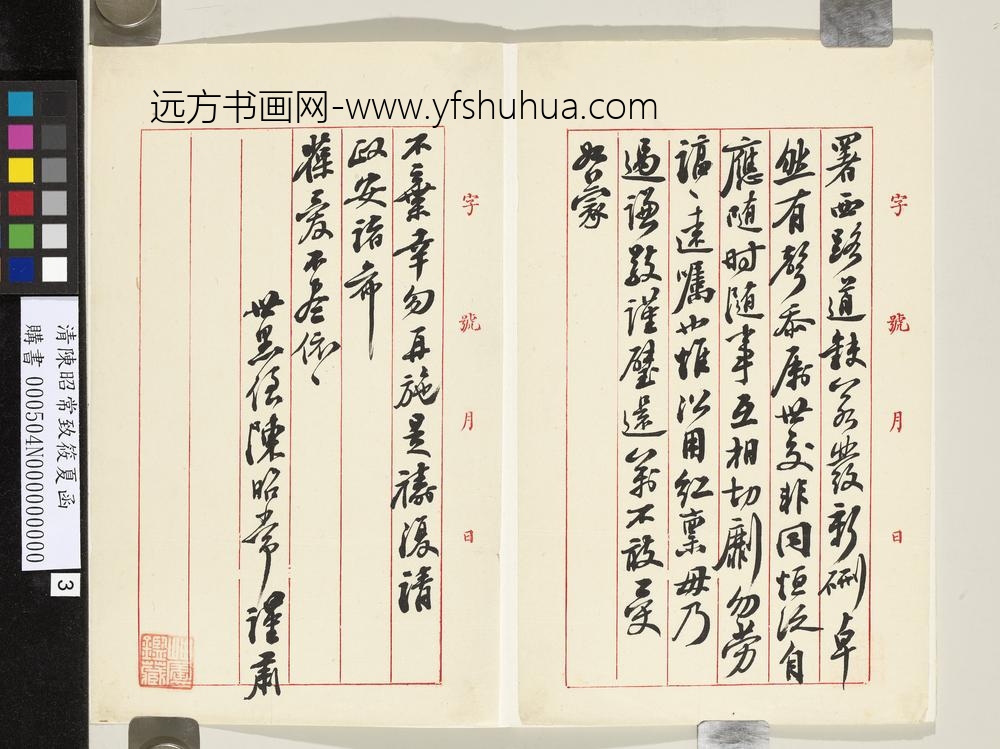 远方书画网-www.yfshuhua.com
字 號 月 日
署西路道缺籌發新硎卓
然有聲忝屬世交非同恒泛自
應隨时隨事互相切劘勿勞
諄、遠囑也惟以用紅稟毋乃
過謙敬謹璧還萬不敢受
如蒙
字 號 月 日
不棄幸勿再施是禱復請
政安諸希
葆爱不盡依、
世愚姪陳昭常 謹肅
鑑藏
清陳昭常致筱夏函
購書 000504N000000000
3